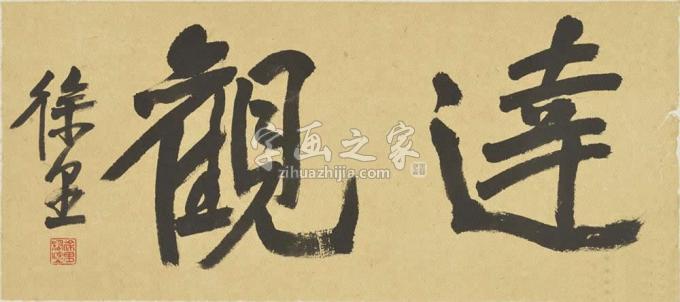 達觀
徐里
字画之家
zihuazhijia.com